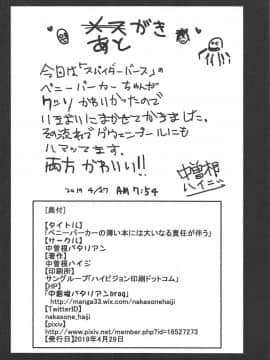 メスがき
あと
今日は「スパイダーバース」の
ペニーパーカーちゃんが
クッソかわいかったので
いきおいにまかせてかきました。
その流れでグウェンプールにも
ハマッてます。
両方かわいい!!
2019 4/27 AM 7:54
中曽根
ハイジ
[奥付]
【タイトル】
「ペニーパーカーの薄い本には大いなる責任が伴う」
【サークル】
中曽根バタリアン
【著作】
中曽根ハイジ
【印刷所】
サングループ「ハイビジョン印刷ドットコム」
【HP】
「中曽根バタリアンbrog」
http://manga33.wix.com/nakasonehaiji
【TwitterID】
nakasone_haiji
【pixiv】
http://www.pixiv.net/member.php?id=18527273
【発行日】2019年4月29日